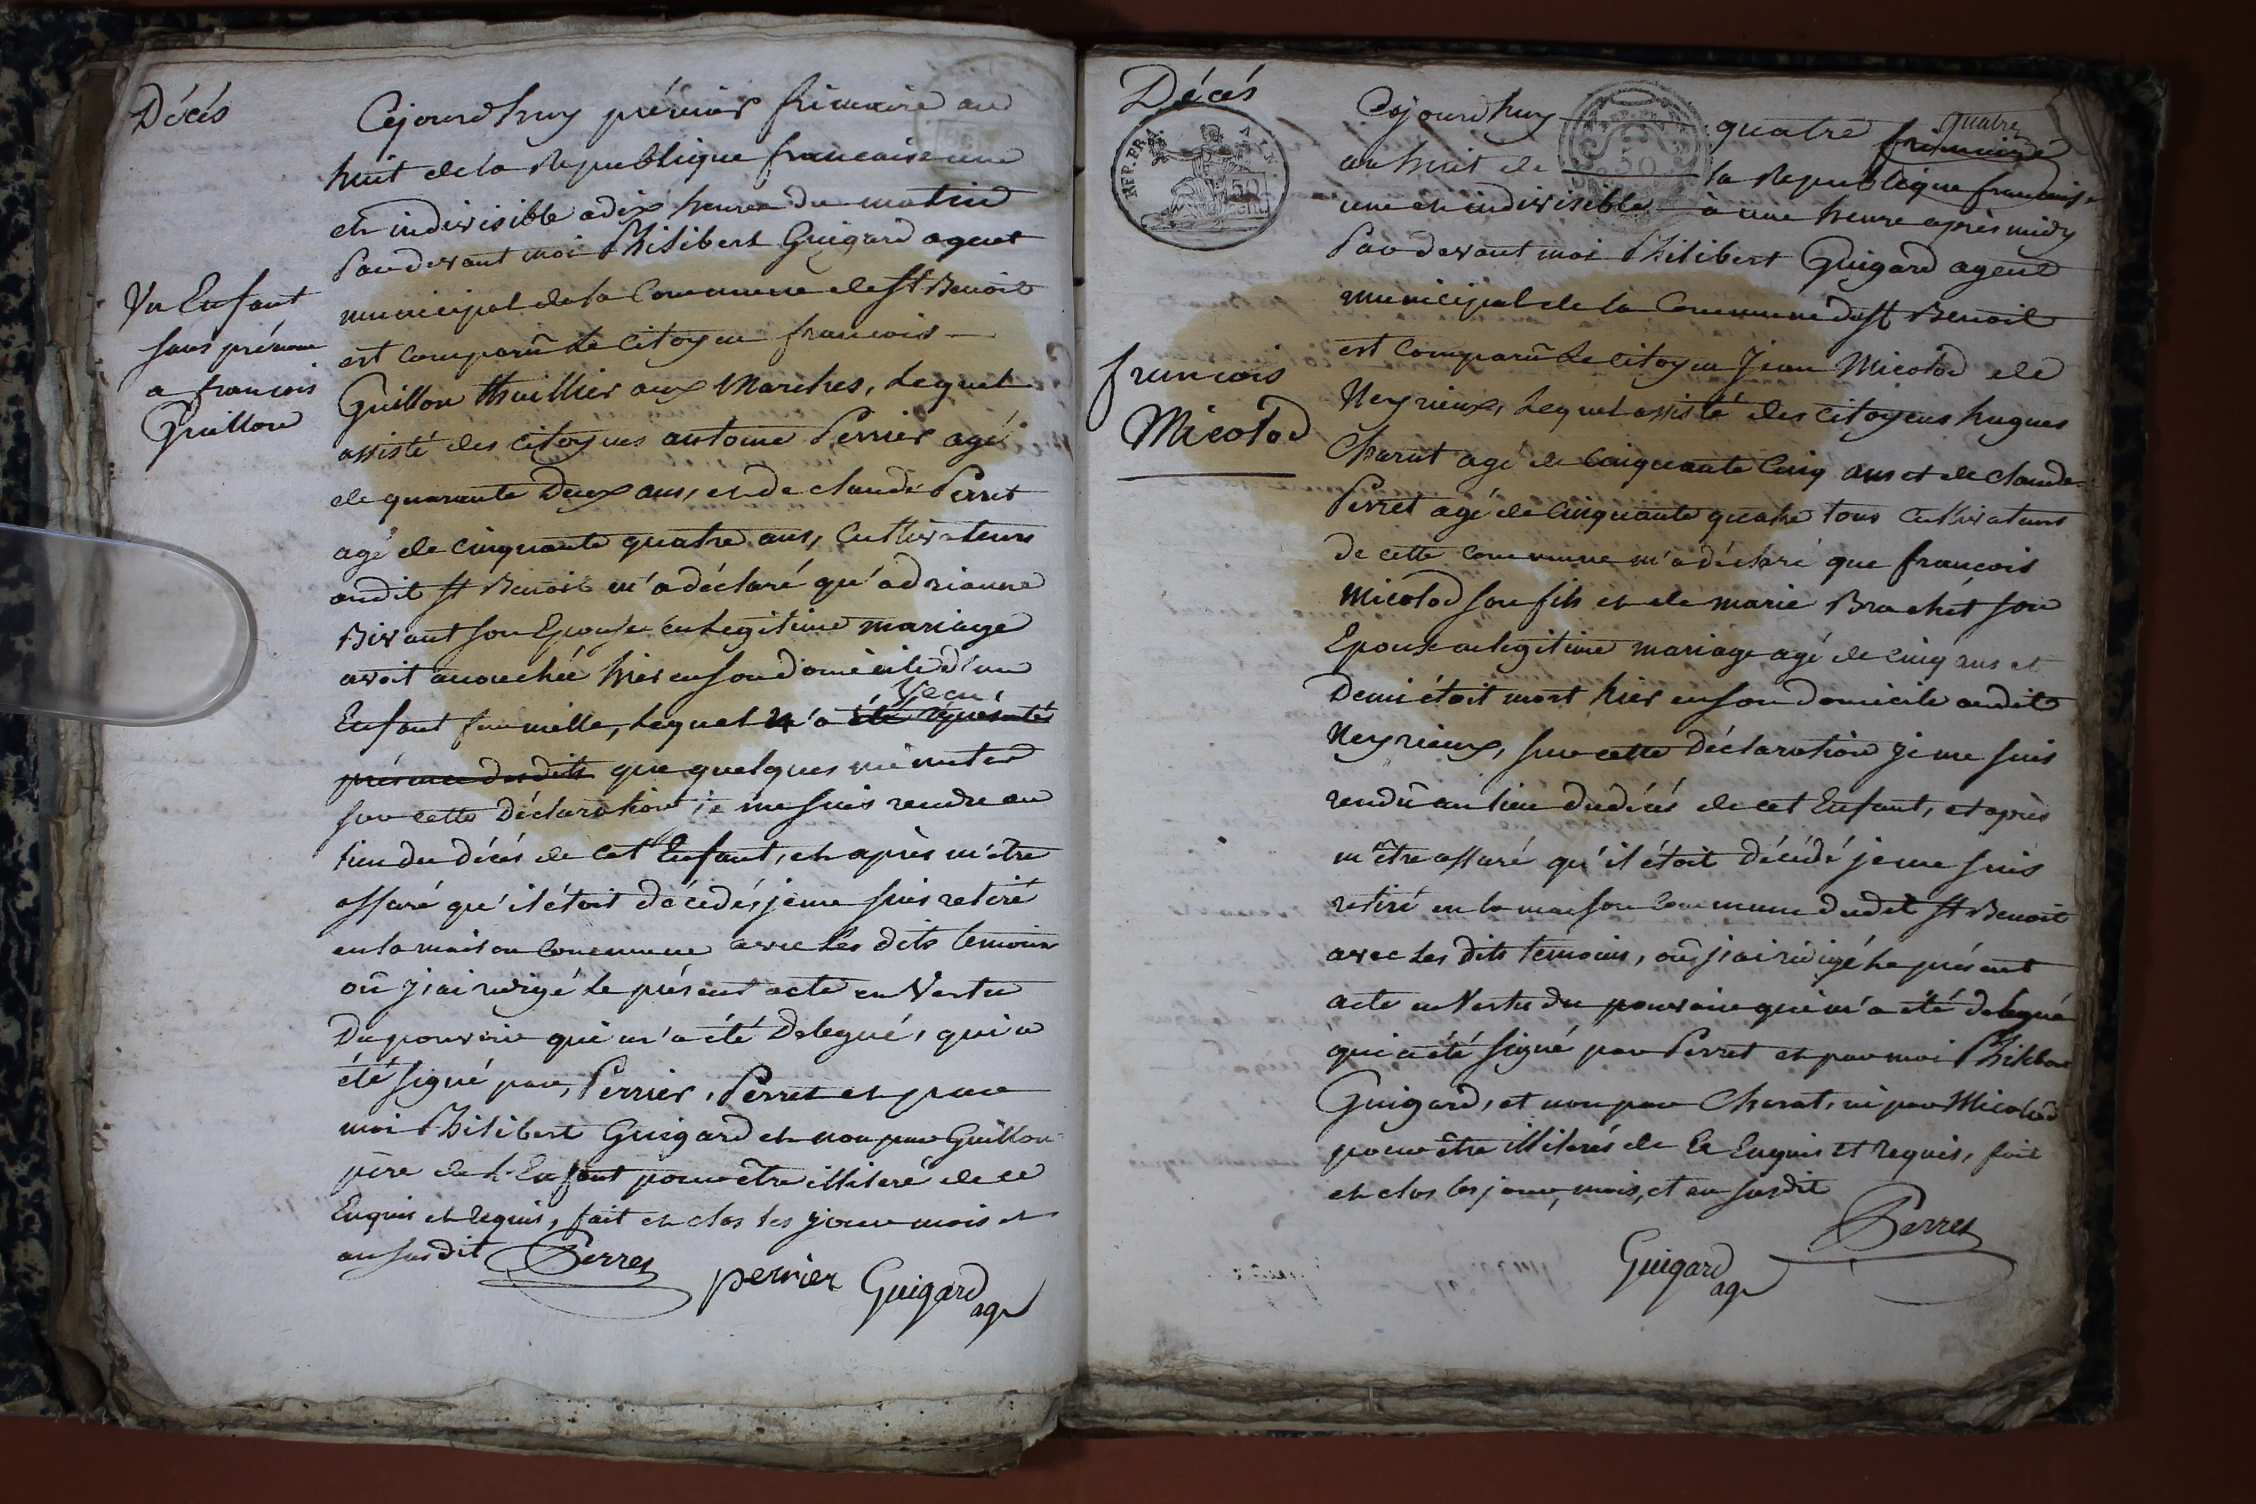 Décés
Cejourd huy prémier frimaire an
huit de la République francaise une
et indivisible a dix heures du matin
Pardevant moi Philibert Guigard agent
municipal de la Commune de St Benoit
est comparû Le citoyen francois
Guillon thuillier aux Marches, Lequel
assisté des citoyens antoine Perrier agé
de quarante Deux ans, et de claude Perret
agé de cinquante quatre ans, Cultivateurs
audit St Benoit m'a déclaré qu'adrianne
Bivant son Epouse en Legitime mariage
avoit accouchée hier en son domicile d'un
Enfant femmelle, Lequel n'a été représenté vecu,
présence desdits que quelques minutes
sur cette Déclaration je me suis rendu au
lieu du décés de cet Enfant, et après m'être
assuré qu'il étoit décédés, je me suis retiré
en la maison Commune avec Les dits temoins
où j'ai redigé Le présent acte en Vertu
Du pouvoir qui m'a été Delegué, qui a
été signé par, Perrier, Perret et par
moi Philibert Guigard et non par Guillon
père de L'Enfant pour être illiteré de ce
Enquis et requis, fait et clos les jour mois et
an susdit
Perret
perrier
Guigard
agt
Un Enfant
sans prénom
a francois
Guillon
Décés
NFP. FRA
50
Cent.
50
Cejourd huy quatre frimaire
quatre
an huit de la République francaise
une et indivisible à une heure après midy
Pardevant moi Philibert Guigard agent
municipal de la Commune du St Benoit
est comparû Le citoyen Jean Micolod de
Neyrieux, Lequel assisté des citoyens hugues
Charat agé de Cinquante Cinq ans et de claude
Perret agé de Cinquante quatre tous Cultivateurs
de cette commune m'a déclaré que francois
Micolod son fils et de marie Brachet son
Epouse en legitime mariage agé de cinq ans et
Demi étoit mort hier en son domicile audit
Neyrieux, sur cette Déclaration je me suis
rendû au lieu dudécés de cet Enfant, et après
m'être assuré qu'il étoit décédé je me suis
retiré en la maison Commune dudit St Benoit
avec Les dits temoins, où j'ai redigé Le présent
acte en Vertu du pouvoir qui m'a été delegué
qui a été signé par Perret et par moi Philibert
Guigard, et non par Charat, ni par Micolod
pour être illiterés de Ce Enquis et requis, fait
et clos les jour, mois, et an susdit
Perret
Guigard
agt
francois
Micolod